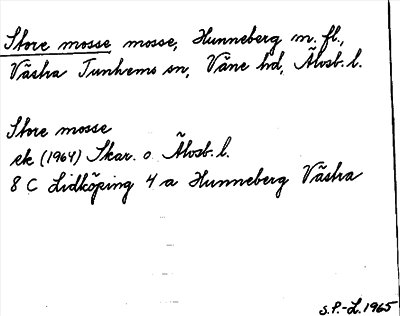 Store mosse mosse, Hunneberg m. fl.,
Västra Tunhems sn, Väne hd, Älvsb. l.
Store mosse
ek (1964) Skar. o Älvsb. l.
8 C Lidköping 4 a Hunneberg Västra
S.P.-L. 1965